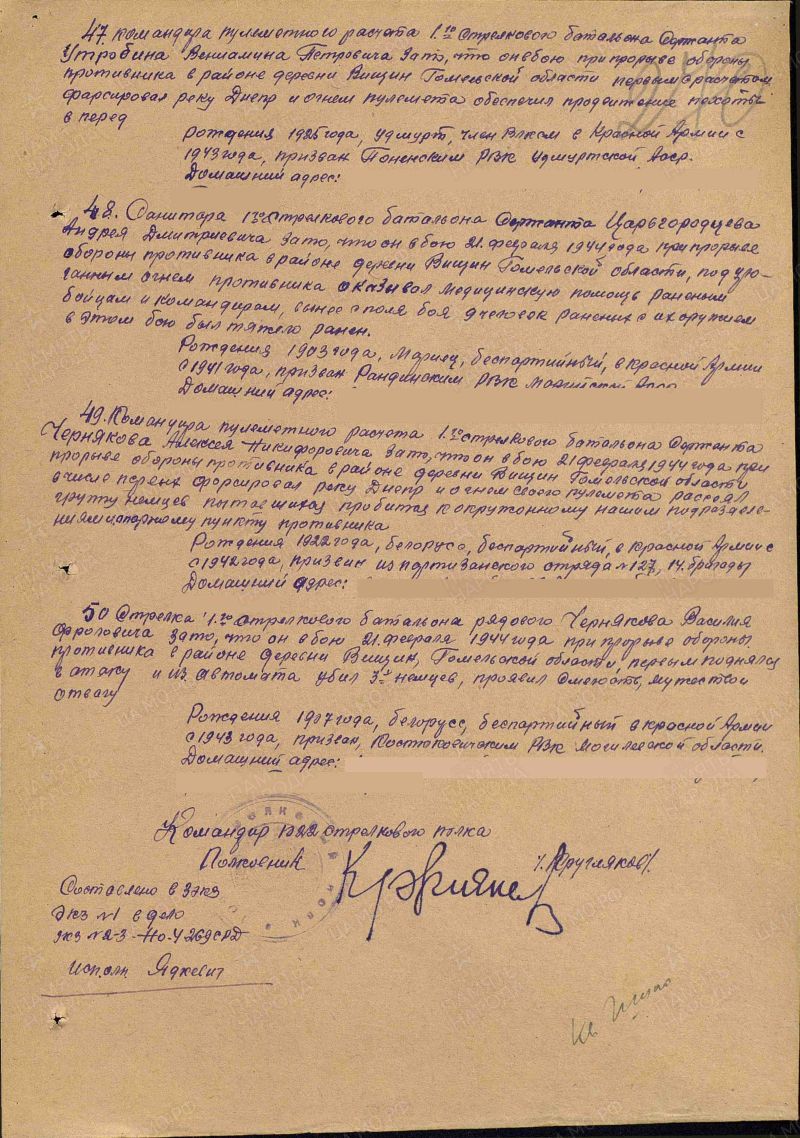 47. Командира пулеметного расчета 1-го стрелкового батальона Сержанта
Утробина Вениамина Петровича за то, что он в бою при прорыве обороны
противника в районе деревни Вищин Гомельской области первым с расчетом
фарсировал реку Днепр и огнем пулемета обеспечил продвижение пехоты
в перед
Рождения 1925 года, удмурт, член ВЛКСМ в Красной Армии с
1943 года, призван РВК Удмуртской АССР.
Домашний адрес:
48. Санитара 1го стрелкового батальона Сержанта Царьгородцева
Андрея Дмитриевича за то, что он в бою 21. февраля 1944 года при прорыве
обороны противника в районе деревни Вищин Гомельской области, под ура-
ганным огнем противника оказывал медицинскую помощь раненым
бойцам и командирам, вынес с поля боя 9 человек раненых с их оружием
в этом бою был тяжело ранен.
Рождения 1903 года, Мариец, беспартийный, в Красной Армии
с 1941 года, призван РВК
Домашний адрес:
49. Командира пулеметного расчета 1.го стрелкового батальона Сержанта
Чернякова Алексея Никифоровича за то, что он в бою 21 февраля 1944 года при
прорыве обороны противника в районе деревни Вищин Гомельской области
в числе первых форсировал реку Днепр и огнем своего пулемета рассеял
группу немцев пытавшихся пробится к окружонному нашим подразделе-
ниям опорному пункту противника
Рождения 1922 года, белорусс, беспартийный, в красной Армии с
с 1942 года, призван из партизанского отряда № 127, 14. бригады
Домашний адрес:
50 Стрелка 1.го стрелкового батальона рядового Чернякова Василия
Фроловича за то, что он в бою 21. февраля 1944 года при прорыве обороны
противника в районе деревни Вищин, Гомельской области, первым поднялся
в атаку и из автомата убил 3х немцев, проявил смелость, мужество и
отвагу
Рождения 1907 года, белорусс, беспартийный в красной Армии
с 1943 года, призван, РВК Могилевской области.
Домашний адрес:
Командир 1022 стрелкового полка
Полковник /Кругляков/.
Составлено в 3 экз
Экз № 1 в дело
экз № 2-3 269 СРД
исполн Яцкевич